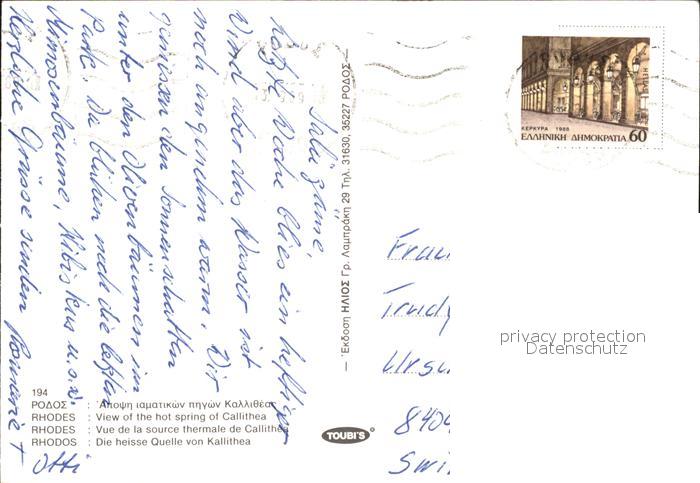 Salü zäme,
letzte Woche blies ein heftiger
Wind aber das Wasser ist
noch angenehm warm. Wir
geniessen den Sonnenschatten
unter den Olivenbäumen im
Park. Da blühen noch die letzten
Mimosenbäume, Hibiskus u.s.w.
Herzliche Grüsse senden
Otti
194
ΡΟΔΟΣ : Άποψη ιαματικών πηγών Καλλιθέας
RHODES : View of the hot spring of Callithea
RHODES : Vue de la source thermale de Callithea
RHODOS : Die heisse Quelle von Kallithea
TOUBI'S
— Έκδοση ΗΛΙΟΣ Γρ. Λαμπράκη 29 Τηλ. 31630, 35227 ΡΟΔΟΣ —
ΚΕΡΚΥΡΑ 1988
ΕΛΛΗΝΙΚΗ ΔΗΜΟΚΡΑΤΙΑ 60
Frau
Trudy
Ursu
840
Swi
privacy protection
Datenschutz